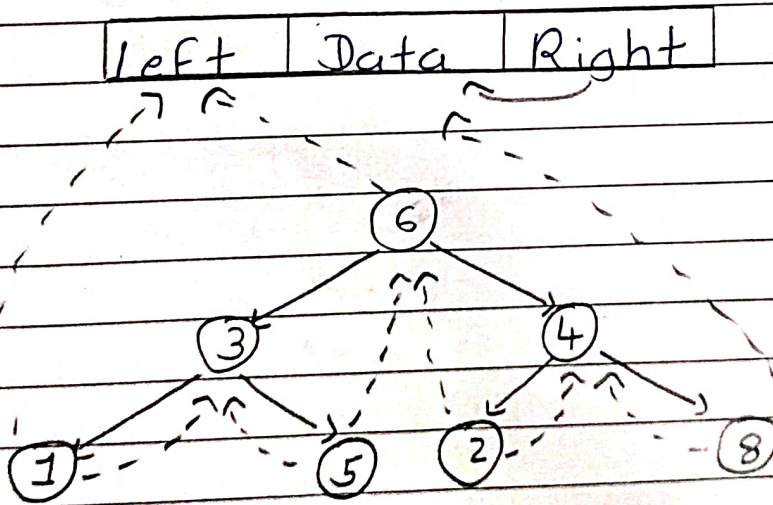 Left Data Right
6
3 4
1 5 2 8